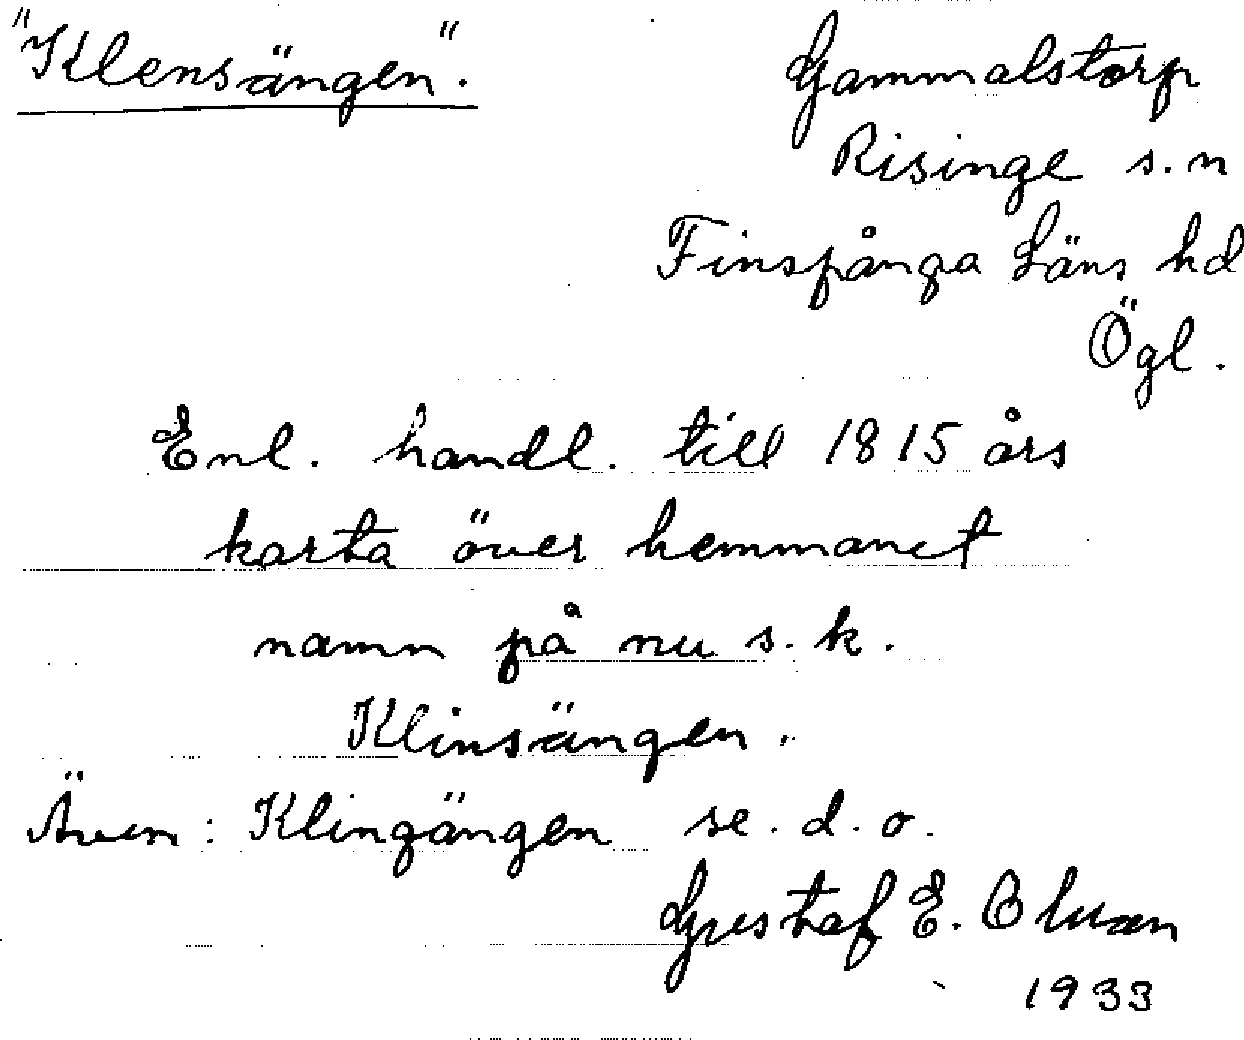 "Klensängen".
Gammalstorp
Risinge s.n
Finspånga Läns hd
Ögl.
Enl. handl. till 1815 års
karta över hemmanet
namn på nu s.k.
Klinsängen.
Även: Klingängen se. d. o.
Gustaf E.
1933